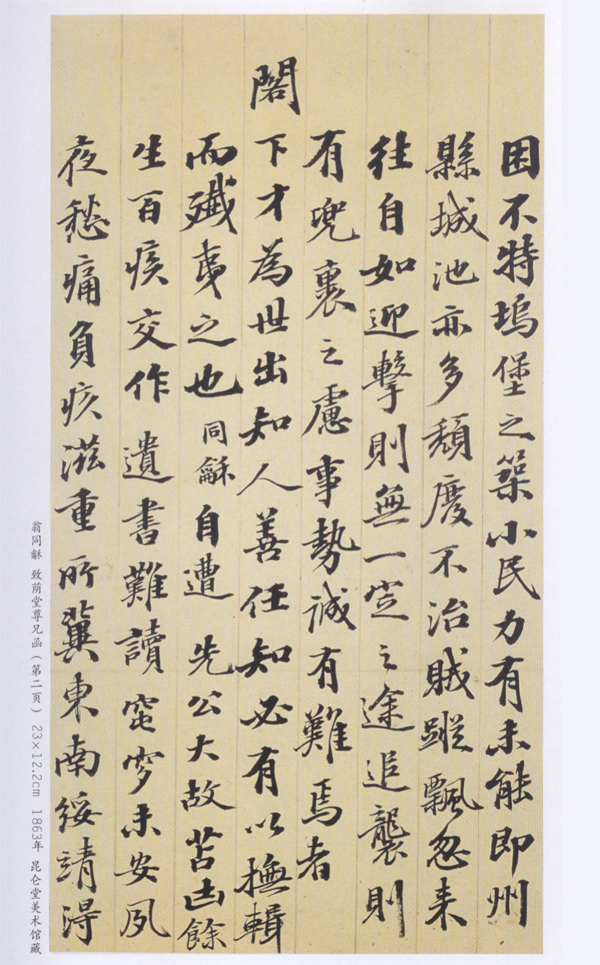 困不特塢堡之築小民力有未能即州
縣城池亦多頹廢不治賊蹤飄忽来
往自如迎擊則無一定之途追襲則
有兜裹之慮事勢誠有難焉者
閣下才為世出知人善任知必有以撫輯
而殲夷之也同龢自遭先公大故苫凷餘
生百疾交作遺書難讀窀穸未安夙
夜愁痛負疚滋重所冀東南綏靖得
翁同龢 致荫堂尊兄函（第二页） 23×12.2cm 1863年 昆仑堂美术馆藏